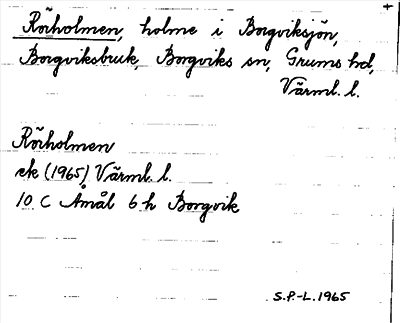 Rörholmen, holme i Borgviksjön,
Borgviksbruk, Borgviks sn, Grums hd,
Värml. l.
Rörholmen
ek (1965) Värml. l.
10 C Åmål 6 h Borgvik
S.P.-L. 1965